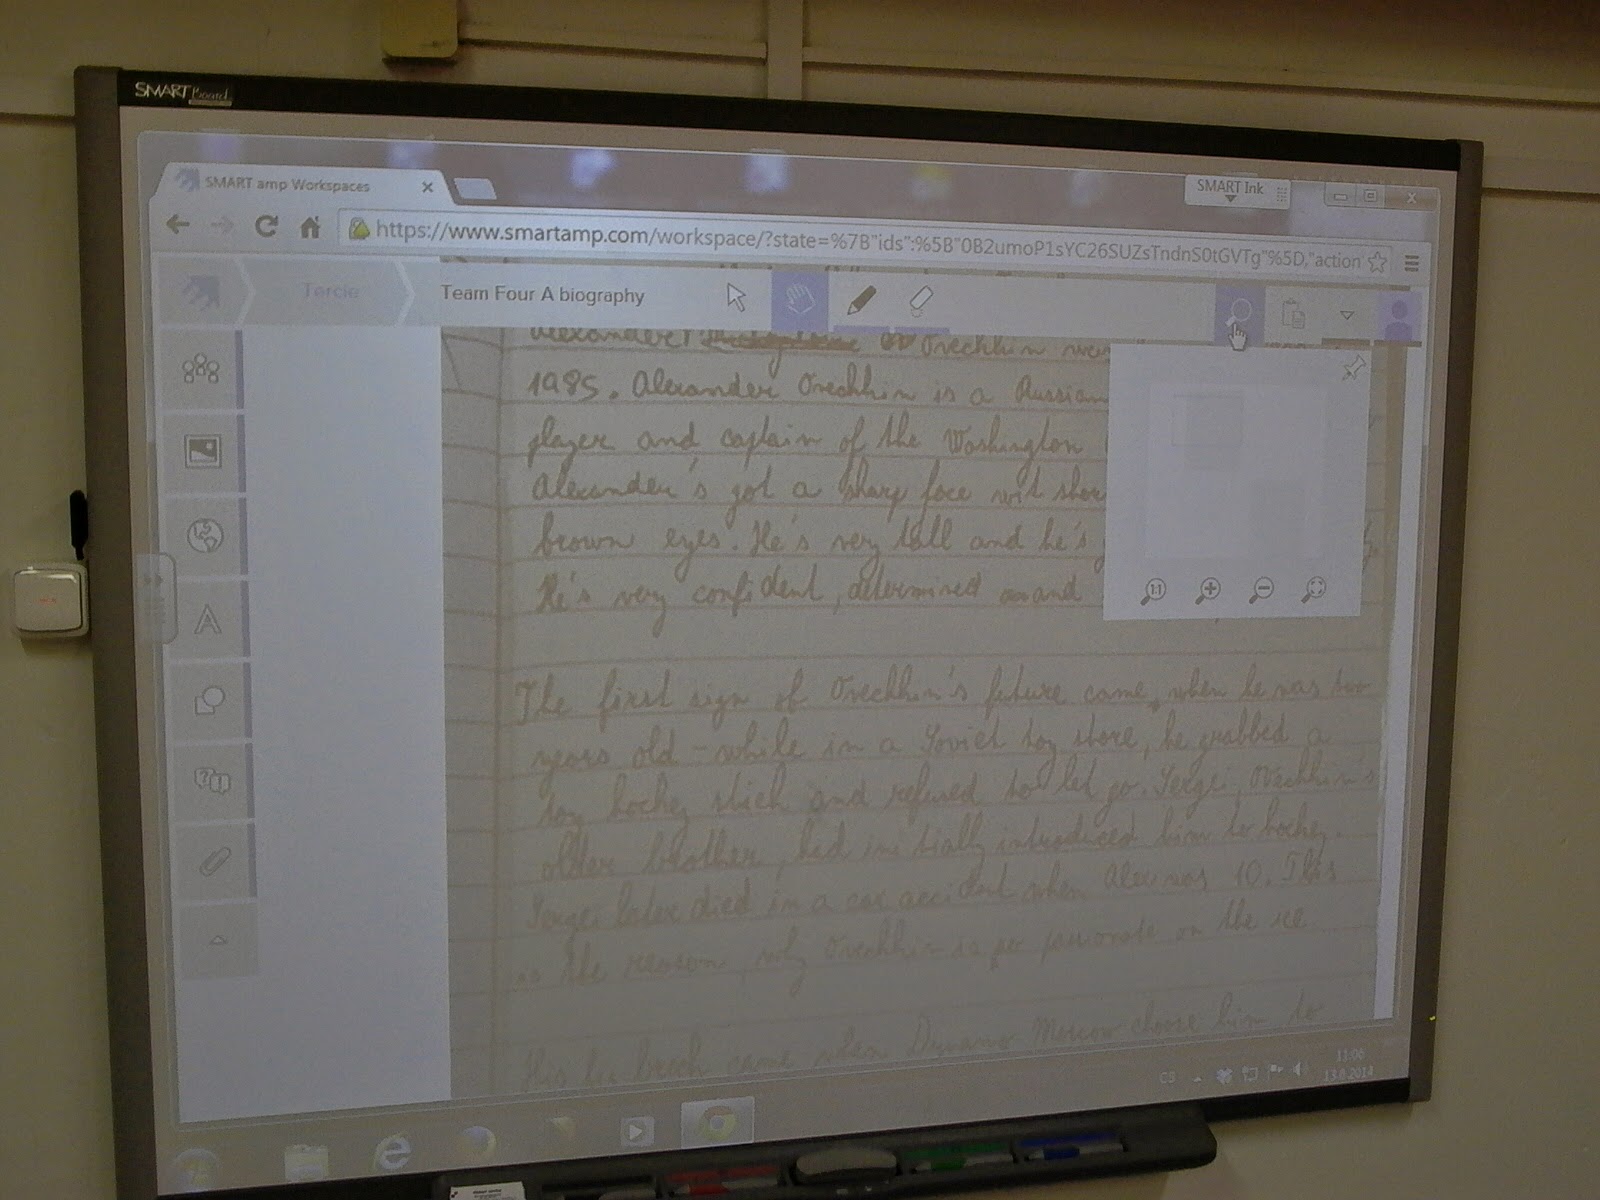 SMART Board
SMART amp Workspaces
SMART Ink
https://www.smartamp.com/workspace/?state=%7B"ids":%5B"0B2umoP1sYC26SUZsTndnS0tGVTg"%5D,"action
Tercie
Team Four A biography
Alexander Ovechkin
1985. Alexander Ovechkin is a Russian
player and captain of the Washington
Alexander's got a sharp face wit
brown eyes. He's very tall and he's
He's very confident, determined and
1:1
The first sign of Ovechkin's future came, when he was two
years old - while in a Soviet toy store, he grabbed a
toy hockey stick and refused to let go. Sergei, Ovechkin's
older brother, had initially introduced him to hockey.
Sergei later died in a car accident when Alex was 10. This
is the reason, why Ovechkin is on the ice
His came when Dynamo Moscow choose him to
CS
11:06
13.6.2014